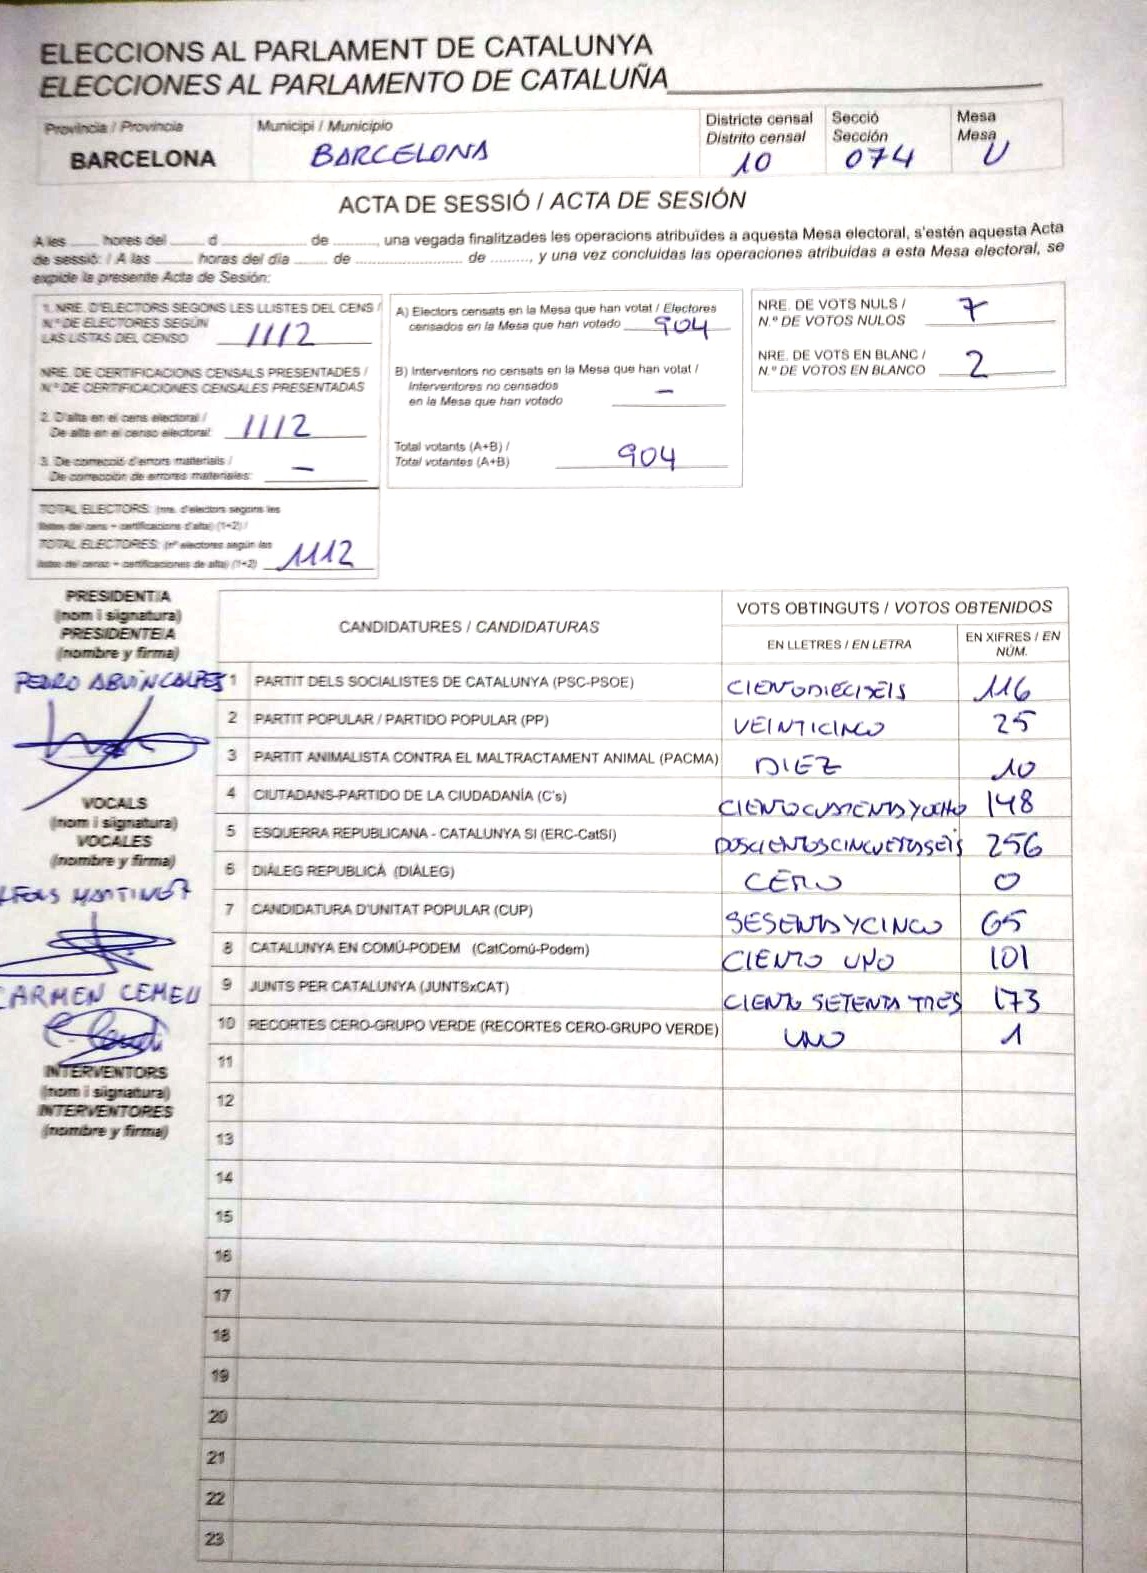 ELECCIONS AL PARLAMENT DE CATALUNYA
ELECCIONES AL PARLAMENTO DE CATALUÑA
Província / Provincia
BARCELONA
Municipi / Municipio
BARCELONA
Districte censal
Distrito censal
10
Secció
Sección
074
Mesa
Mesa
U
ACTA DE SESSIÓ / ACTA DE SESIÓN
A les ...... hores del ...... d ............... de ........, una vegada finalitzades les operacions atribuïdes a aquesta Mesa electoral, s'estén aquesta Acta
de sessió: / A las ....... horas del día ...... de ..................... de ........, y una vez concluidas las operaciones atribuidas a esta Mesa electoral, se
expide la presente Acta de Sesión:
1. NRE. D'ELECTORS SEGONS LES LLISTES DEL CENS /
N.º DE ELECTORES SEGÚN
LAS LISTAS DEL CENSO 1112
NRE. DE CERTIFICACIONS CENSALS PRESENTADES /
N.º DE CERTIFICACIONES CENSALES PRESENTADAS
2. D'alta en el cens electoral /
De alta en el censo electoral: 1112
3. De correcció d'errors materials /
De corrección de errores materiales: –
TOTAL ELECTORS: (nre. d'electors segons les
llistes del cens + certificacions d'alta) (1+2) /
TOTAL ELECTORES: (nº electores según las
listas del censo + certificaciones de alta) (1+2) 1112
A) Electors censats en la Mesa que han votat / Electores
censados en la Mesa que han votado 904
B) Interventors no censats en la Mesa que han votat /
Interventores no censados
en la Mesa que han votado –
Total votants (A+B) /
Total votantes (A+B) 904
NRE. DE VOTS NULS /
N.º DE VOTOS NULOS 7
NRE. DE VOTS EN BLANC /
N.º DE VOTOS EN BLANCO 2
PRESIDENT/A
(nom i signatura)
PRESIDENTE/A
(nombre y firma)
PEDRO
VOCALS
(nom i signatura)
VOCALES
(nombre y firma)
CARMEN
INTERVENTORS
(nom i signatura)
INTERVENTORES
(nombre y firma)
CANDIDATURES / CANDIDATURAS
VOTS OBTINGUTS / VOTOS OBTENIDOS
EN LLETRES / EN LETRA
EN XIFRES / EN
NÚM.
1 PARTIT DELS SOCIALISTES DE CATALUNYA (PSC-PSOE) CIENTODIECISEIS 116
2 PARTIT POPULAR / PARTIDO POPULAR (PP) VEINTICINCO 25
3 PARTIT ANIMALISTA CONTRA EL MALTRACTAMENT ANIMAL (PACMA) DIEZ 10
4 CIUTADANS-PARTIDO DE LA CIUDADANÍA (C's) 148
5 ESQUERRA REPUBLICANA - CATALUNYA SI (ERC-CatSI) 256
6 DIÀLEG REPUBLICÀ (DIÀLEG) CERO 0
7 CANDIDATURA D'UNITAT POPULAR (CUP) SESENTAYCINCO 65
8 CATALUNYA EN COMÚ-PODEM (CatComú-Podem) CIENTO UNO 101
9 JUNTS PER CATALUNYA (JUNTSxCAT) CIENTO SETENTA TRES 173
10 RECORTES CERO-GRUPO VERDE (RECORTES CERO-GRUPO VERDE) UNO 1
11
12
13
14
15
16
17
18
19
20
21
22
23